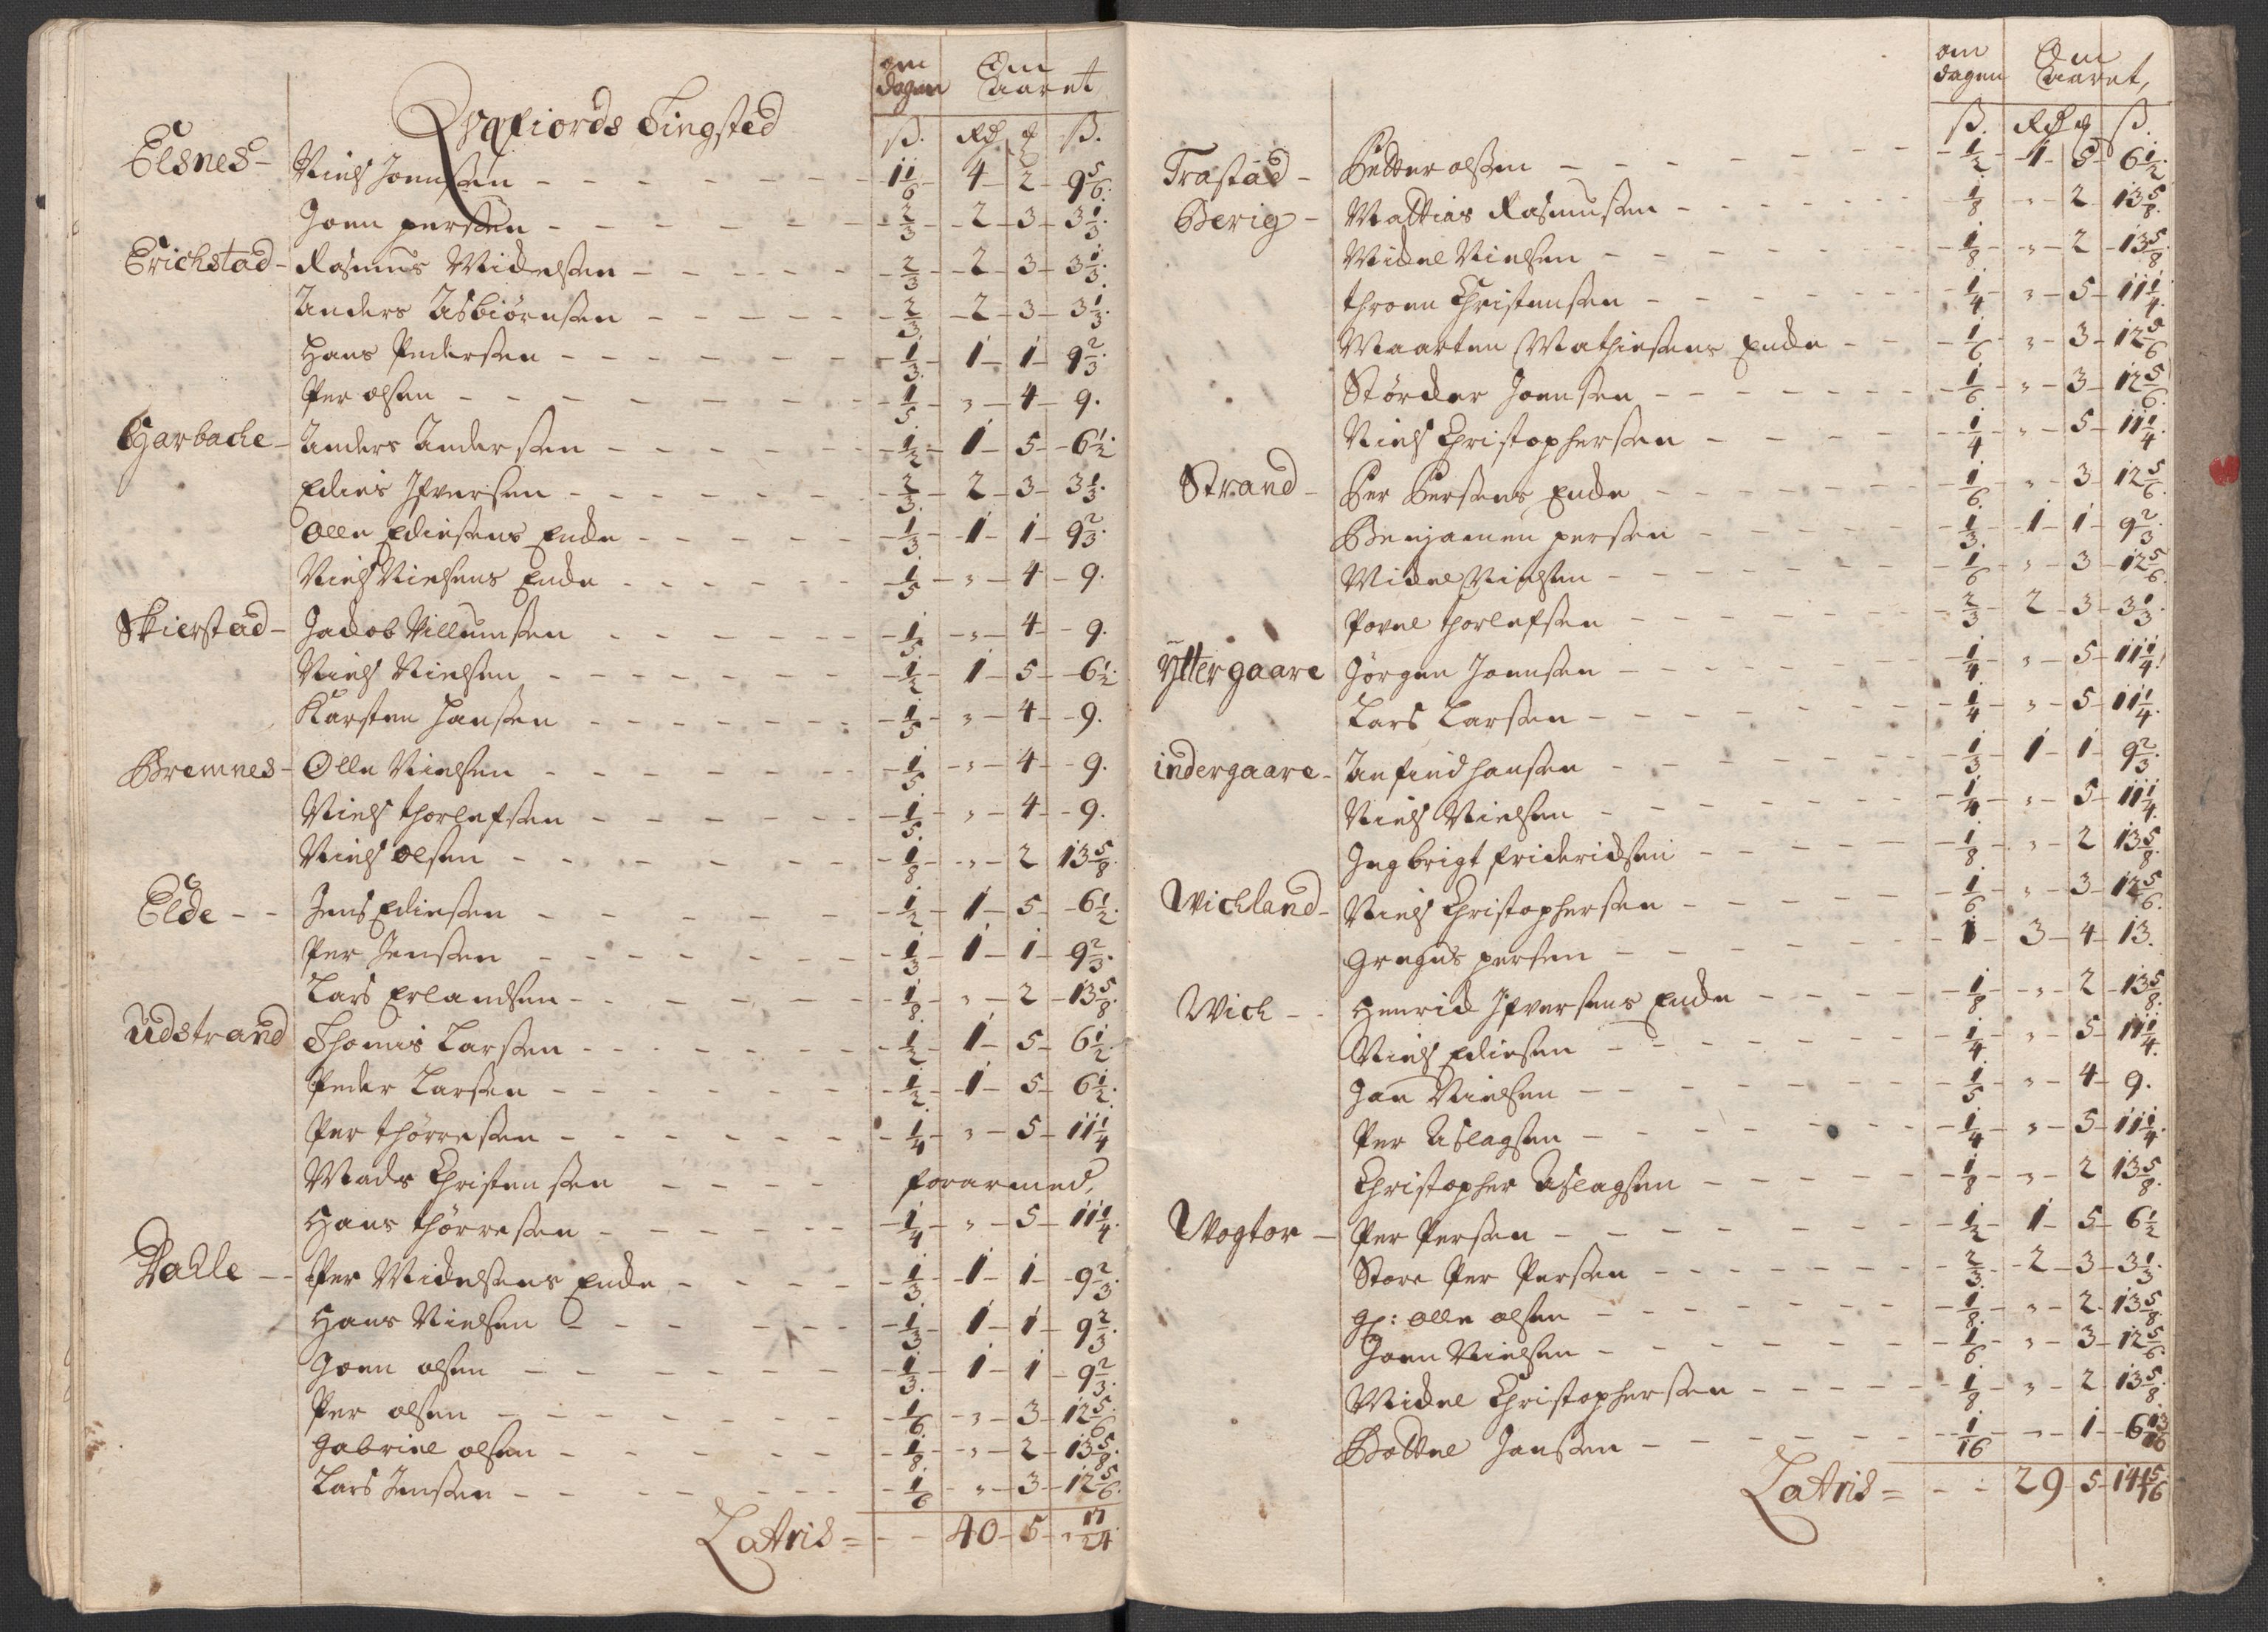 om dagen Om Aaret
Qvæfiords Tingsted
ß. Rd ß.
Elsnes - Niels Joenssen 1 1/6 4 2 9 5/6
Joen perssen 2/3 2 3 3 1/3
Erichstad - Rasmus Michelsen 2/3 2 3 3 1/3
Anders Asbiørnsen 2/3 2 3 3 1/3
Hans Pedersen 1/3 1 1 9 2/3
Per olsen 1/5 " 4 9.
Garbache - Anders Anderssen 1/2 1 5 6 1/2
Edies Ifversen 2/3 2 3 3 1/3
Olle Ediesens Encke 1/3 1 1 9 2/3
Niels Nielsens Encke 1/5 " 4 9.
Skierstad - Jacob Villumsen 1/5 " 4 9.
Niels Nielsen 1/2 1 5 6 1/2
Karsten Hansen 1/5 " 4 9.
Bremnes - Olle Nielsen 1/5 " 4 9.
Niels thorlefsen 1/5 " 4 9.
Niels olsen 1/8 " 2 13 5/8
Elde - - Jens Ediesen 1/2 1 5 6 1/2
Per Jenssen 1/3 1 1 9 2/3
Lars Erlandsen 1/8 " 2 13 5/8
Udstrand Thomis Larssen 1/2 1 5 6 1/2
Peder Larsen 1/2 1 5 6 1/2
Per thørresen 1/4 " 5 11 1/4
Mads Christensen forarmed,
Hans thørresen 1/4 " 5 11 1/4
Dahle - - Per Michelsens Encke 1/3 1 1 9 2/3
Hans Nielsen 1/3 1 1 9 2/3
Joen olsen 1/3 1 1 9 2/3
Per olsen 1/6 " 3 12 5/6
Gabriel olsen 1/8 " 2 13 5/8
Lars Jenssen 1/6 " 3 12 5/6
Latris = 40 5 " 17/24
om dagen Om Aaret,
ß. Rd ß.
Trastad - Petter olssen 1/2 1 5 6 1/2
Berig - Mattias Rasmussen 1/8 " 2 13 5/8
Michel Nielsen 1/8 " 2 13 5/8
throen Christensen 1/4 " 5 11 1/4
Maarten Mathiesens Encke 1/6 " 3 12 5/6
Størcker Joensen 1/6 " 3 12 5/6
Niels Christophersen 1/4 " 5 11 1/4
Strand - Per Persens Encke 1/6 " 3 12 5/6
Benjamen persen 1/3 1 1 9 2/3
Michel Nielsen 1/6 " 3 12 5/6
Povel thorlefsen 2/3 2 3 3 1/3
Yttergaare Jørgen Joensen 1/4 " 5 11 1/4
Lars Larssen 1/4 " 5 11 1/4
indergaare - Anfind hansen 1/3 1 1 9 2/3
Niels Nielsen 1/4 " 5 11 1/4
Ingbrigt friderichsen 1/8 " 2 13 5/8
Wichland - Niels Christophersen 1/6 " 3 12 5/6
Gregus persen 1 3 4 13.
Wich - - Henrich Ifversens Encke 1/8 " 2 13 5/8
Niels Ediesen 1/4 " 5 11 1/4
Jan Nielsen 1/5 " 4 9.
Per Aslagsen 1/4 " 5 11 1/4
Christopher Aslagsen 1/8 " 2 13 5/8
Wogtor - Per Persen 1/2 1 5 6 1/2
Store Per Persen 2/3 2 3 3 1/3
olle olsen 1/8 " 2 13 5/8
Joen Nielsen 1/6 " 3 12 5/6
Michel Christophersen 1/8 " 2 13 5/8
Bottel Janssen 1/16 " 1 6 13/16
Latris = 29 5 14 5/16